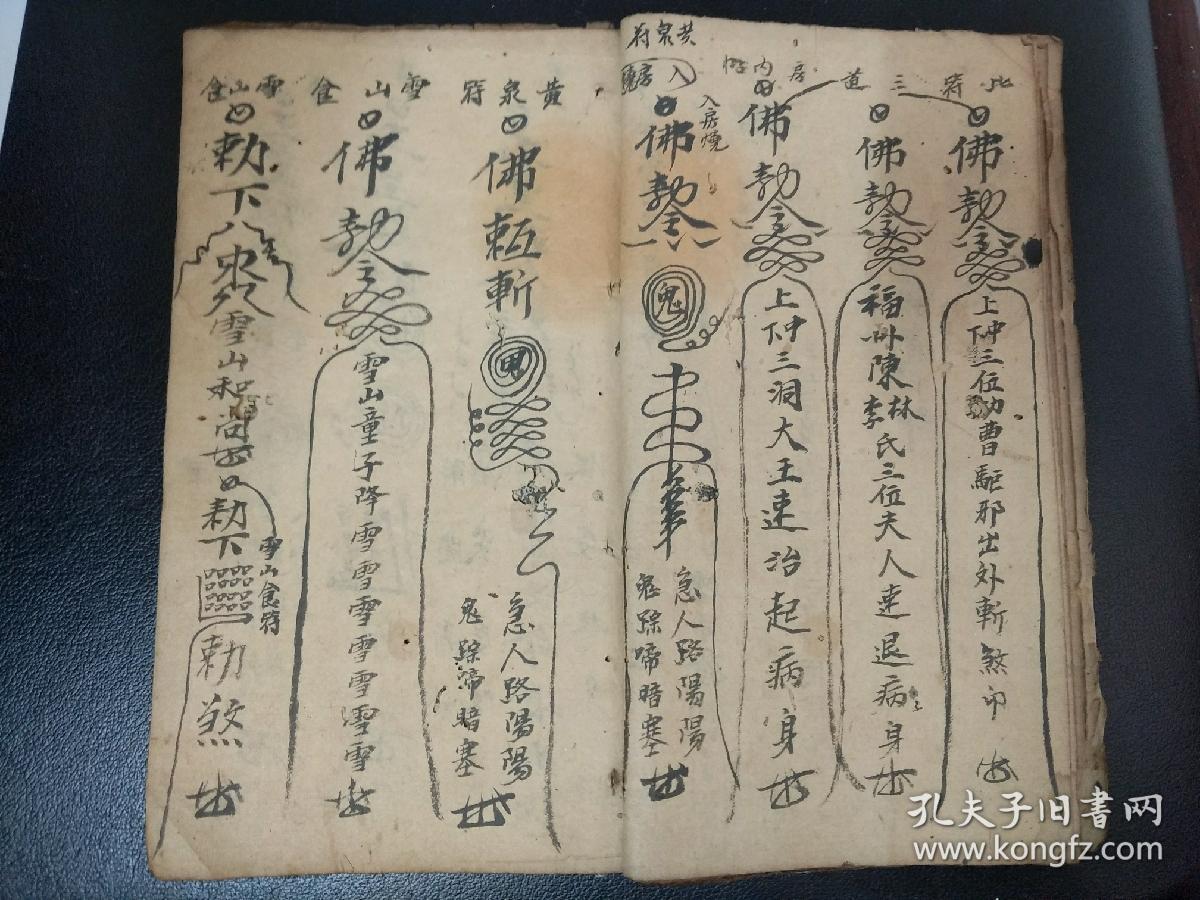 此符三道
佛勅令
上中下三位功曹駈邪出外斬煞印
佛勅令
福州陳林李氏三位夫人速退病身
房内
佛勅令
上中下三洞大王速治起病身
黄泉符
入房燒
入房燒
佛勅令
鬼
急人路陽陽
鬼踪啼暗塞
黄泉符
佛
斬
鬼
急人路陽陽
鬼踪啼暗塞
雪山食
佛勅令
雪山童子降雪雪雪雪雪雪雪
雪山食
勅下
雪山和尚
勅下
雪山食符
勅煞
孔夫子旧书网
www.kongfz.com